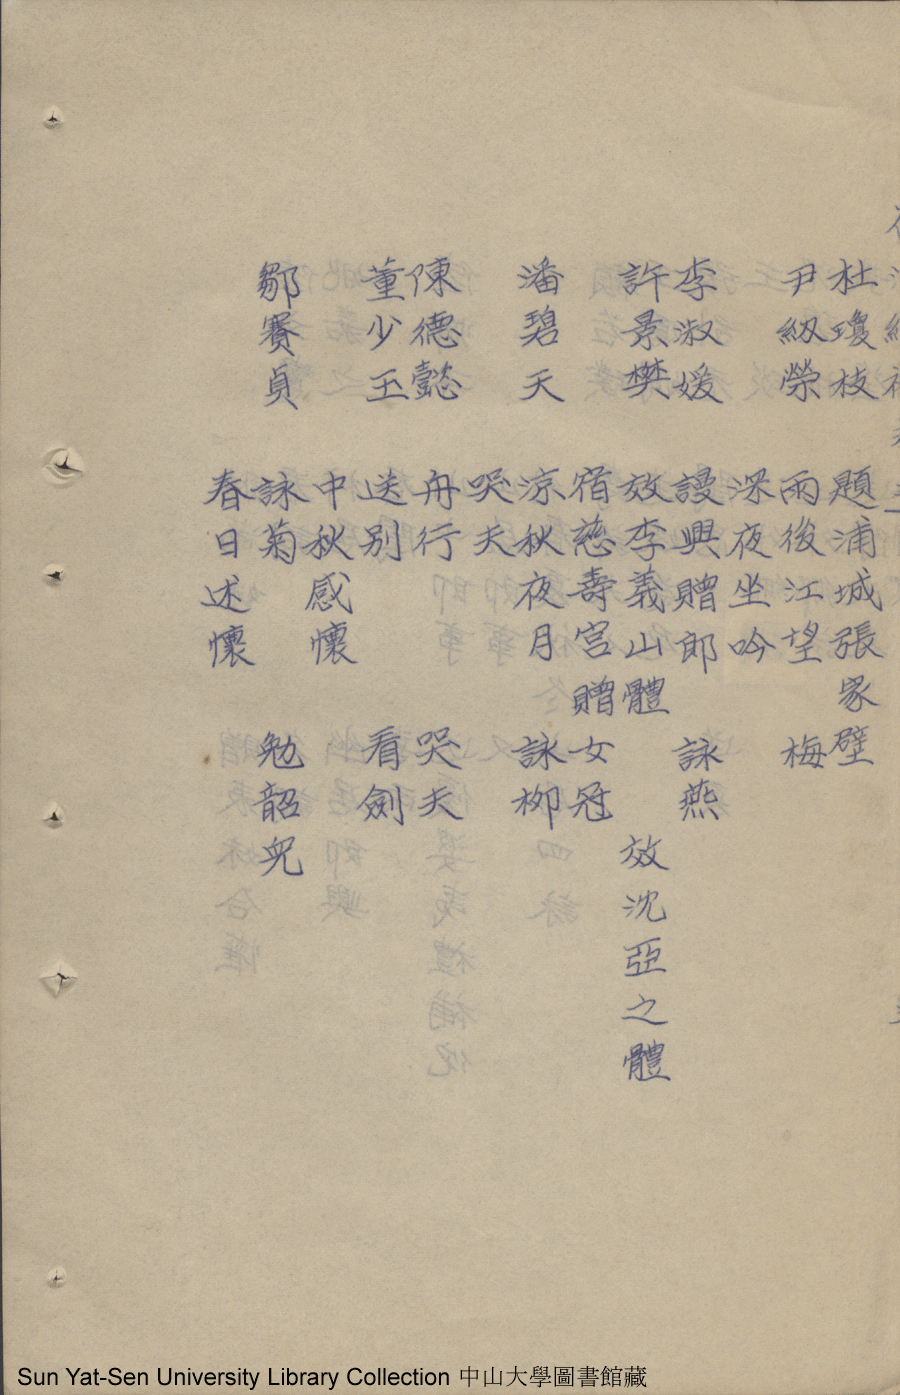 杜瓊枝 題浦城張家壁
尹紉榮 雨後江望 梅
深夜坐吟
李淑媛 謾興贈郎 詠燕
許景樊 效李義山體 效沈亞之體
宿慈壽宮贈女冠
潘碧天 涼秋夜月 詠柳
哭夫
陳德懿 舟行 哭夫
董少玉 送別 看劍
中秋感懷
鄒賽貞 詠菊 勉韶兒
春日述懷
Sun Yat-Sen University Library Collection 中山大學圖書館藏